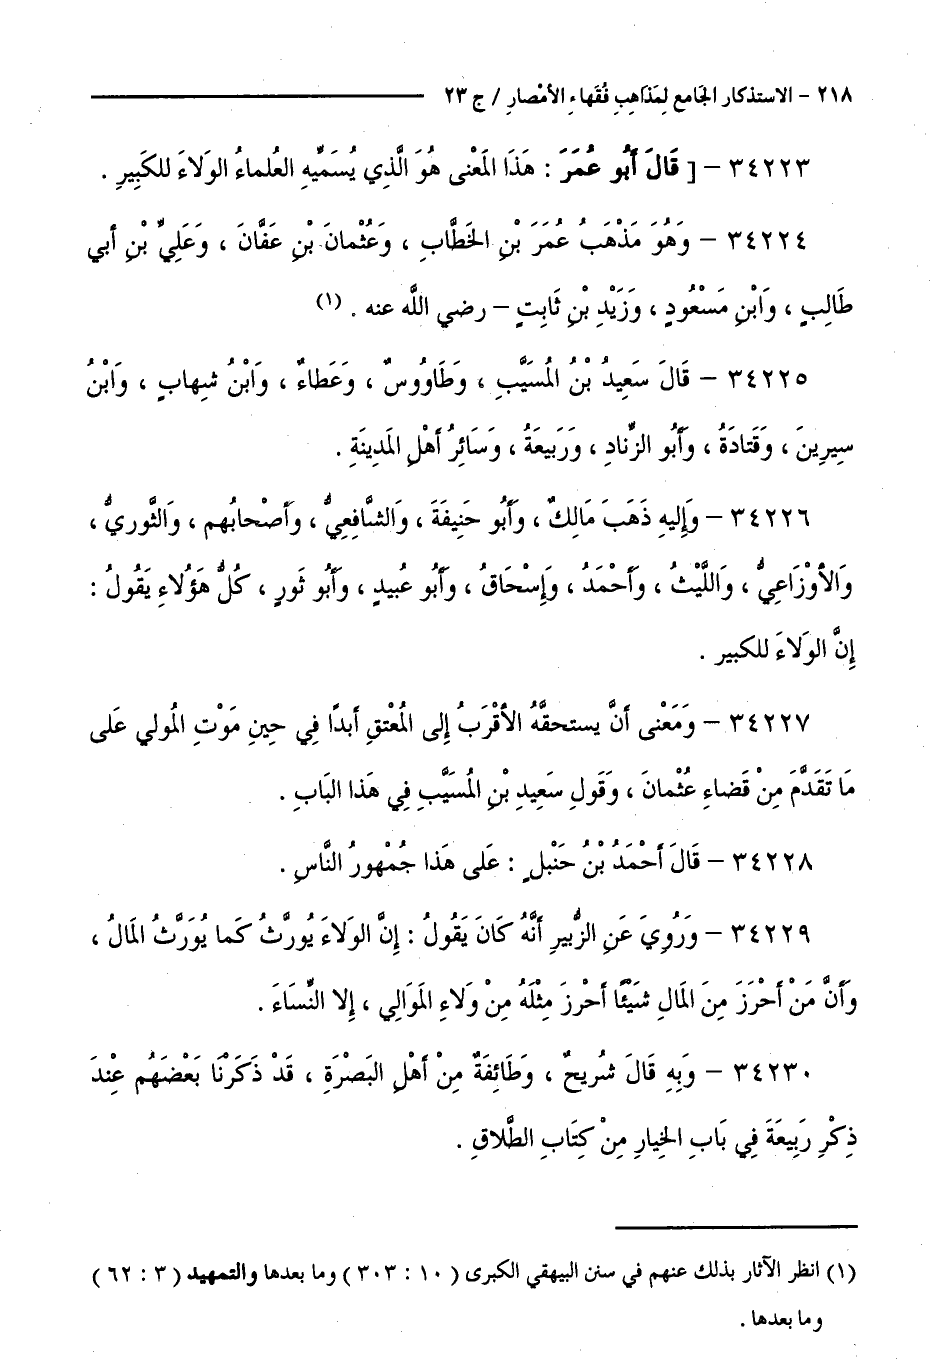 ٢١٨ – الاستذكار الجَامع لِمَذَاهِبِ فُقَهاءِ الأمْصارِ / ج ٢٣
٣٤٢٢٣ – [ قَالَ أَبُو عُمَرَ : هَذَا المَعْنى هُوَ الَّذِي يُسَمِّيهِ العُلماءُ الوَلاءَ للكَبِيرِ .
٣٤٢٢٤ – وَهُوَ مَذْهَبُ عُمَرَ بْنِ الخَطَّابِ ، وَعُثْمانَ بْنِ عَفَّانَ ، وَعَلِيِّ بْنِ أَبي
طَالِبٍ ، وَابْنِ مَسْعُودٍ ، وَزَيْدِ بْنِ ثَابِتٍ – رضي اللَّه عنه . (١)
٣٤٢٢٥ – قَالَ سَعِيدُ بْنُ المُسَيَّبِ ، وَطَاوُوسٌ ، وَعَطاءٌ ، وَابْنُ شِهابٍ ، وَابْنُ
سِيرِينَ ، وَقَتَادَةُ ، وَأَبُو الزِّنادِ ، وَرَبِيعَةُ ، وَسَائِرُ أَهْلِ المَدِينَةِ .
٣٤٢٢٦ – وَإِليهِ ذَهَبَ مَالِكٌ ، وَأَبُو حَنِيفَةَ ، وَالشَّافِعِيُّ ، وَأَصْحابُهم ، وَالثَّوريُّ ،
وَالأَوْزَاعِيُّ ، وَاللَّيْثُ ، وَأَحْمَدُ ، وَإِسْحَاقُ ، وَأَبُو عُبيدٍ ، وَأَبُو ثَورٍ ، كُلُّ هَؤُلاءِ يَقُولُ :
إِنَّ الوَلاءَ للكبيرِ .
٣٤٢٢٧ – وَمَعْنى أنَّ يستحقَّهُ الأقْرَبُ إِلى المُعتقِ أبداً فِي حِينِ مَوْتِ المُولي عَلى
مَا تَقَدَّمَ مِنْ قَضاءِ عُثْمانَ ، وَقَولِ سَعِيدِ بْنِ المُسَيَّبِ فِي هَذا البَابِ .
٣٤٢٢٨ – قَالَ أَحْمَدُ بْنُ حَنْبلٍ : عَلى هَذا جُمْهورُ النَّاسِ .
٣٤٢٢٩ – وَرُوِيَ عَنِ الزُّبيرِ أَنَّهُ كَانَ يَقُولُ : إِنَّ الوَلاءَ يُورَّثُ كَما يُورَّثُ المَالُ ،
وَأَنَّ مَنْ أَحْرَزَ مِنَ المَالِ شَيْئًا أحْرزَ مِثْلَهُ مِنْ وَلاءِ المَوَالِي ، إِلا النِّسَاءَ .
٣٤٢٣٠ – وَبِهِ قَالَ شُريحٌ ، وَطَائِفَةٌ مِنْ أَهْلِ البَصْرَةِ ، قَدْ ذَكَرْنَا بَعْضَهُم عِنْدَ
ذِكْرِ رَبِيعَةَ فِي بَابِ الخِيارِ مِنْ كِتَابِ الطَّلاقِ .
(١) انظر الآثار بذلك عنهم في سنن البيهقي الكبرى ( ١٠ : ٣٠٣ ) وما بعدها والتمهيد ( ٣ : ٦٢ )
وما بعدها .